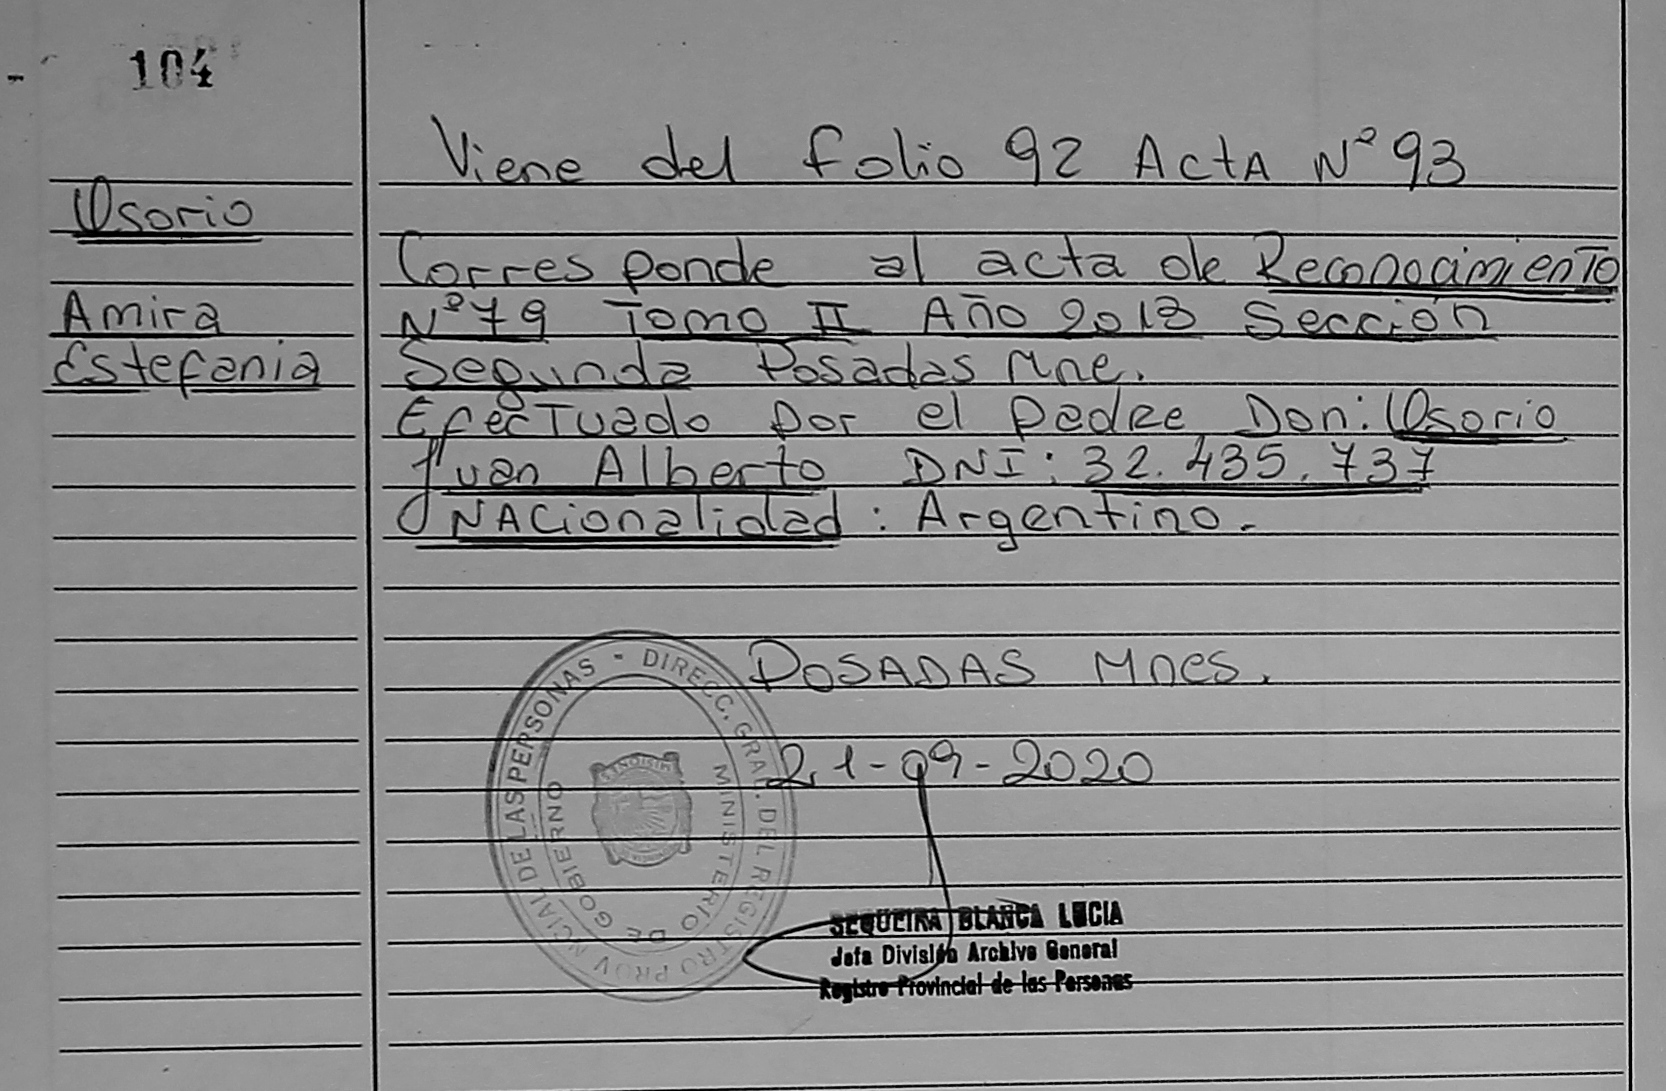 104
Viene del folio 92 Acta N° 93
Osorio
Amira
Estefania
Corresponde al acta de Reconocimiento
N° 79 Tomo II Año 2013 Sección
Segunda Posadas Mne.
Efectuado por el padre Don: Osorio
Juan Alberto DNI: 32.435.737
Nacionalidad: Argentino.
POSADAS Mnes.
21-09-2020
DIRECC. GRAL. DEL REGISTRO PROVINCIAL DE LAS PERSONAS -
MINISTERIO DE GOBIERNO
MISIONES
SEQUEIRA BLANCA LUCIA
Jefa División Archivo General
Registro Provincial de las Personas